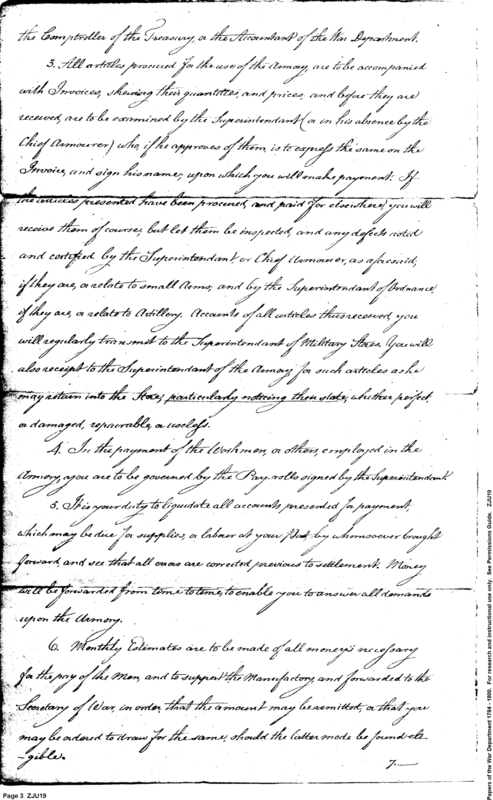 the Comptroller of the Treasury, or the Accountant of the War Department.
3. All articles procured for the use of the Armory, are to be accompanied
with Invoices, shewing their quantities, and prices, and before they are
received, are to be examined by the Superintendant (or in his absence by the
Chief Armourer) who, if he approves of them, is to express the same on the
Invoice, and sign his name, upon which you will make payment. If
the articles presented have been procured, and paid for elsewhere, you will
receive them of course, but let them be inspected, and any defects noted
and certified by the Superintendant or Chief Armourer, as aforesaid,
if they are, or relate to small Arms, and by the Superintendant of Ordnance,
if they are, or relate to Artillery. Accounts of all articles thus received, you
will regularly transmit to the Superintendant of Military Stores. You will
also receipt to the Superintendant of the Armory for such articles as he
may return into the Store, particularly noticing their state, whether perfect
or damaged, repairable, or useless.
4. In the payment of the Workmen, or others, employed in the
Armory, you are to be governed by the Pay-rolls signed by the Superintendant.
5. It is your duty to liquidate all accounts presented for payment,
which may be due for supplies, or labour at your Post by whomsoever brought
forward, and see that all errors are corrected previous to settlement. Money
will be forwarded from time to time, to enable you to answer all demands
upon the Armory.
6. Monthly Estimates are to be made of all money's necessary
for the pay of the Men, and to support the Manufactory, and forwarded to the
Secretary of War, in order, that the amount may be remitted, or that you
may be ordered to draw for the same, should the latter mode be found ele
-gible.
7.—
Page 3 ZJU19
Papers of the War Department 1784 - 1800. For research and instructional use only. See Permissions Guide. ZJU19